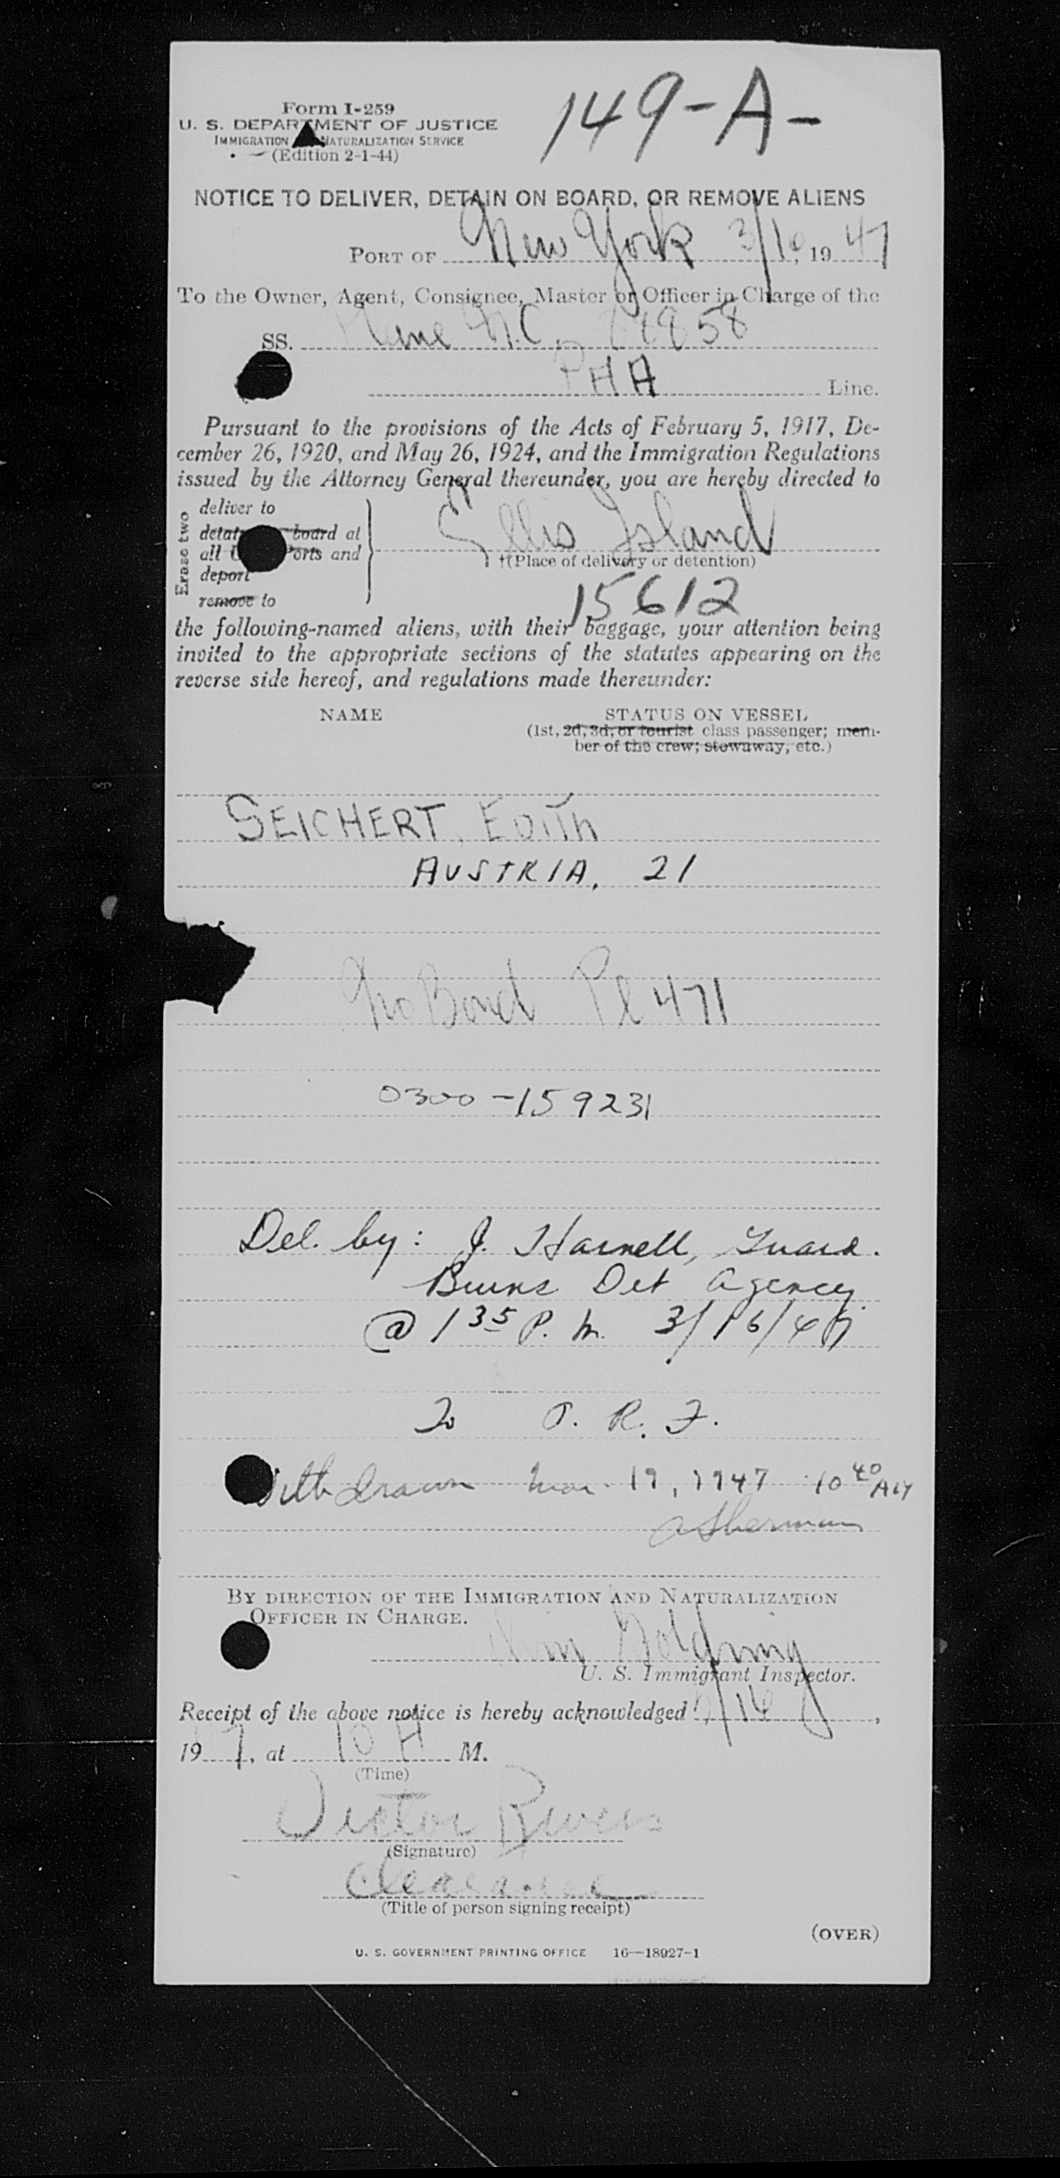 149-A-
Form I-259
U. S. DEPARTMENT OF JUSTICE
IMMIGRATION NATURALIZATION SERVICE
(Edition 2-1-44)
NOTICE TO DELIVER, DETAIN ON BOARD, OR REMOVE ALIENS
PORT OF New York 3/16, 1947
To the Owner, Agent, Consignee, Master or Officer in Charge of the
SS. Plane N.C. 88858
PAA Line.
Pursuant to the provisions of the Acts of February 5, 1917, De-
cember 26, 1920, and May 26, 1924, and the Immigration Regulations
issued by the Attorney General thereunder, you are hereby directed to
Erase two
deliver to
board at
all and
deport
remove to
Ellis Island
†(Place of delivery or detention)
15612
the following-named aliens, with their baggage, your attention being
invited to the appropriate sections of the statutes appearing on the
reverse side hereof, and regulations made thereunder:
NAME STATUS ON VESSEL
(1st, 2d, 3d, or tourist class passenger; mem-
ber of the crew; stowaway, etc.)
SEICHERT, EDITH
AUSTRIA, 21
No Bond Pl 471
0300-159231
Del. by: J. Harnell, Guard.
Burns Det Agency
@ 1 35 P. M. 3/16/47
To T. R. F.
Withdrawn Mar. 19, 1947 10 40 AM
A Sherman
BY DIRECTION OF THE IMMIGRATION AND NATURALIZATION
OFFICER IN CHARGE.
Goldring
U. S. Immigrant Inspector.
Receipt of the above notice is hereby acknowledged 3/16,
19 7, at 10 A M.
(Time)
Victor Rivera
(Signature)
Clearance
(Title of person signing receipt)
(OVER)
U. S. GOVERNMENT PRINTING OFFICE 16—18927-1